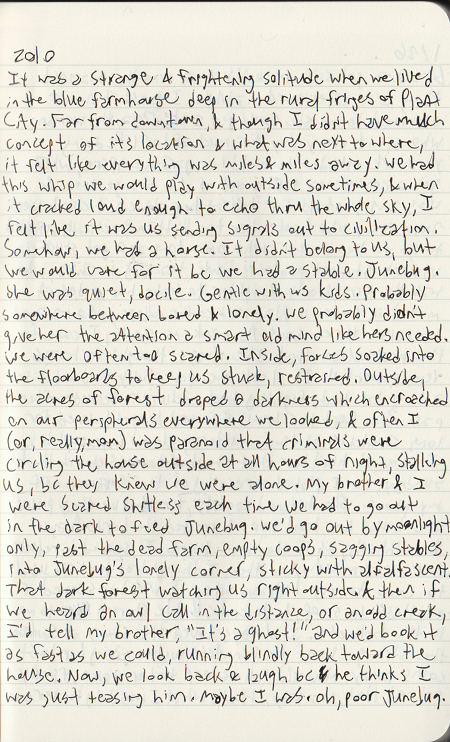 2010
It was a strange & frightening solitude when we lived
in the blue farmhouse deep in the rural fringes of Plant
City. Far from downtown, & though I didn't have much
concept of its location & what was next to where,
it felt like everything was miles & miles away. We had
this whip we would play with outside sometimes, & when
it cracked loud enough to echo thru the whole sky, I
felt like it was us sending signals out to civilization.
Somehow, we had a horse. It didn't belong to us, but
we would care for it bc we had a stable. Junebug.
She was quiet, docile. Gentle with us kids. Probably
somewhere between bored & lonely. We probably didn't
give her the attention a smart old mind like hers needed.
We were often too scared. Inside, forces soaked into
the floorboards to keep us stuck, restrained. Outside,
the acres of forest draped a darkness which encroached
on our peripherals everywhere we looked, & often I
(or, really, mom) was paranoid that criminals were
circling the house outside at all hours of night, stalking
us, bc they knew we were alone. My brother & I
were scared shitless each time we had to go out
in the dark to feed Junebug. We'd go out by moonlight
only, past the dead farm, empty coops, sagging stables,
into Junebug's lonely corner, sticky with alfalfa scent.
That dark forest watching us right outside & then if
we heard an owl call in the distance, or an odd creak,
I'd tell my brother, "It's a ghost!" and we'd book it
as fast as we could, running blindly back toward the
house. Now, we look back & laugh bc he thinks I
was just teasing him. Maybe I was. Oh, poor Junebug.